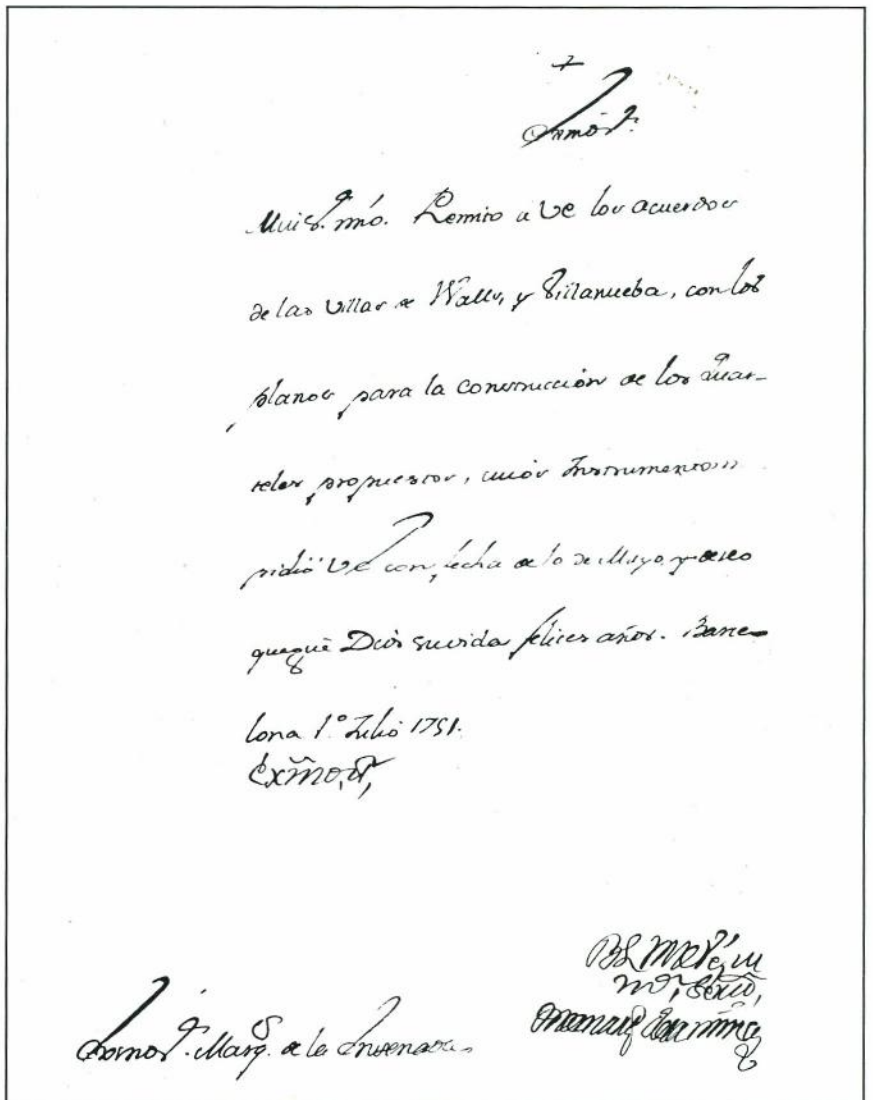 +
Exmo Sr.
Mui Sr. mio. Remito a VE los acuerdos
de las Villas de Walls, y Villanueba, con los
planos para la construcción de los quar-
teles propuestos, cuios Instrumentos
pidió VE con fecha de 10 de Mayo, y deseo
que gue Dios su vida felices años. Barce-
lona 1º Julio 1751.
Exmo, Sr,
BLM de VE, su
mor, servo,
Exmo Sr. Marqs. de la Ensenada